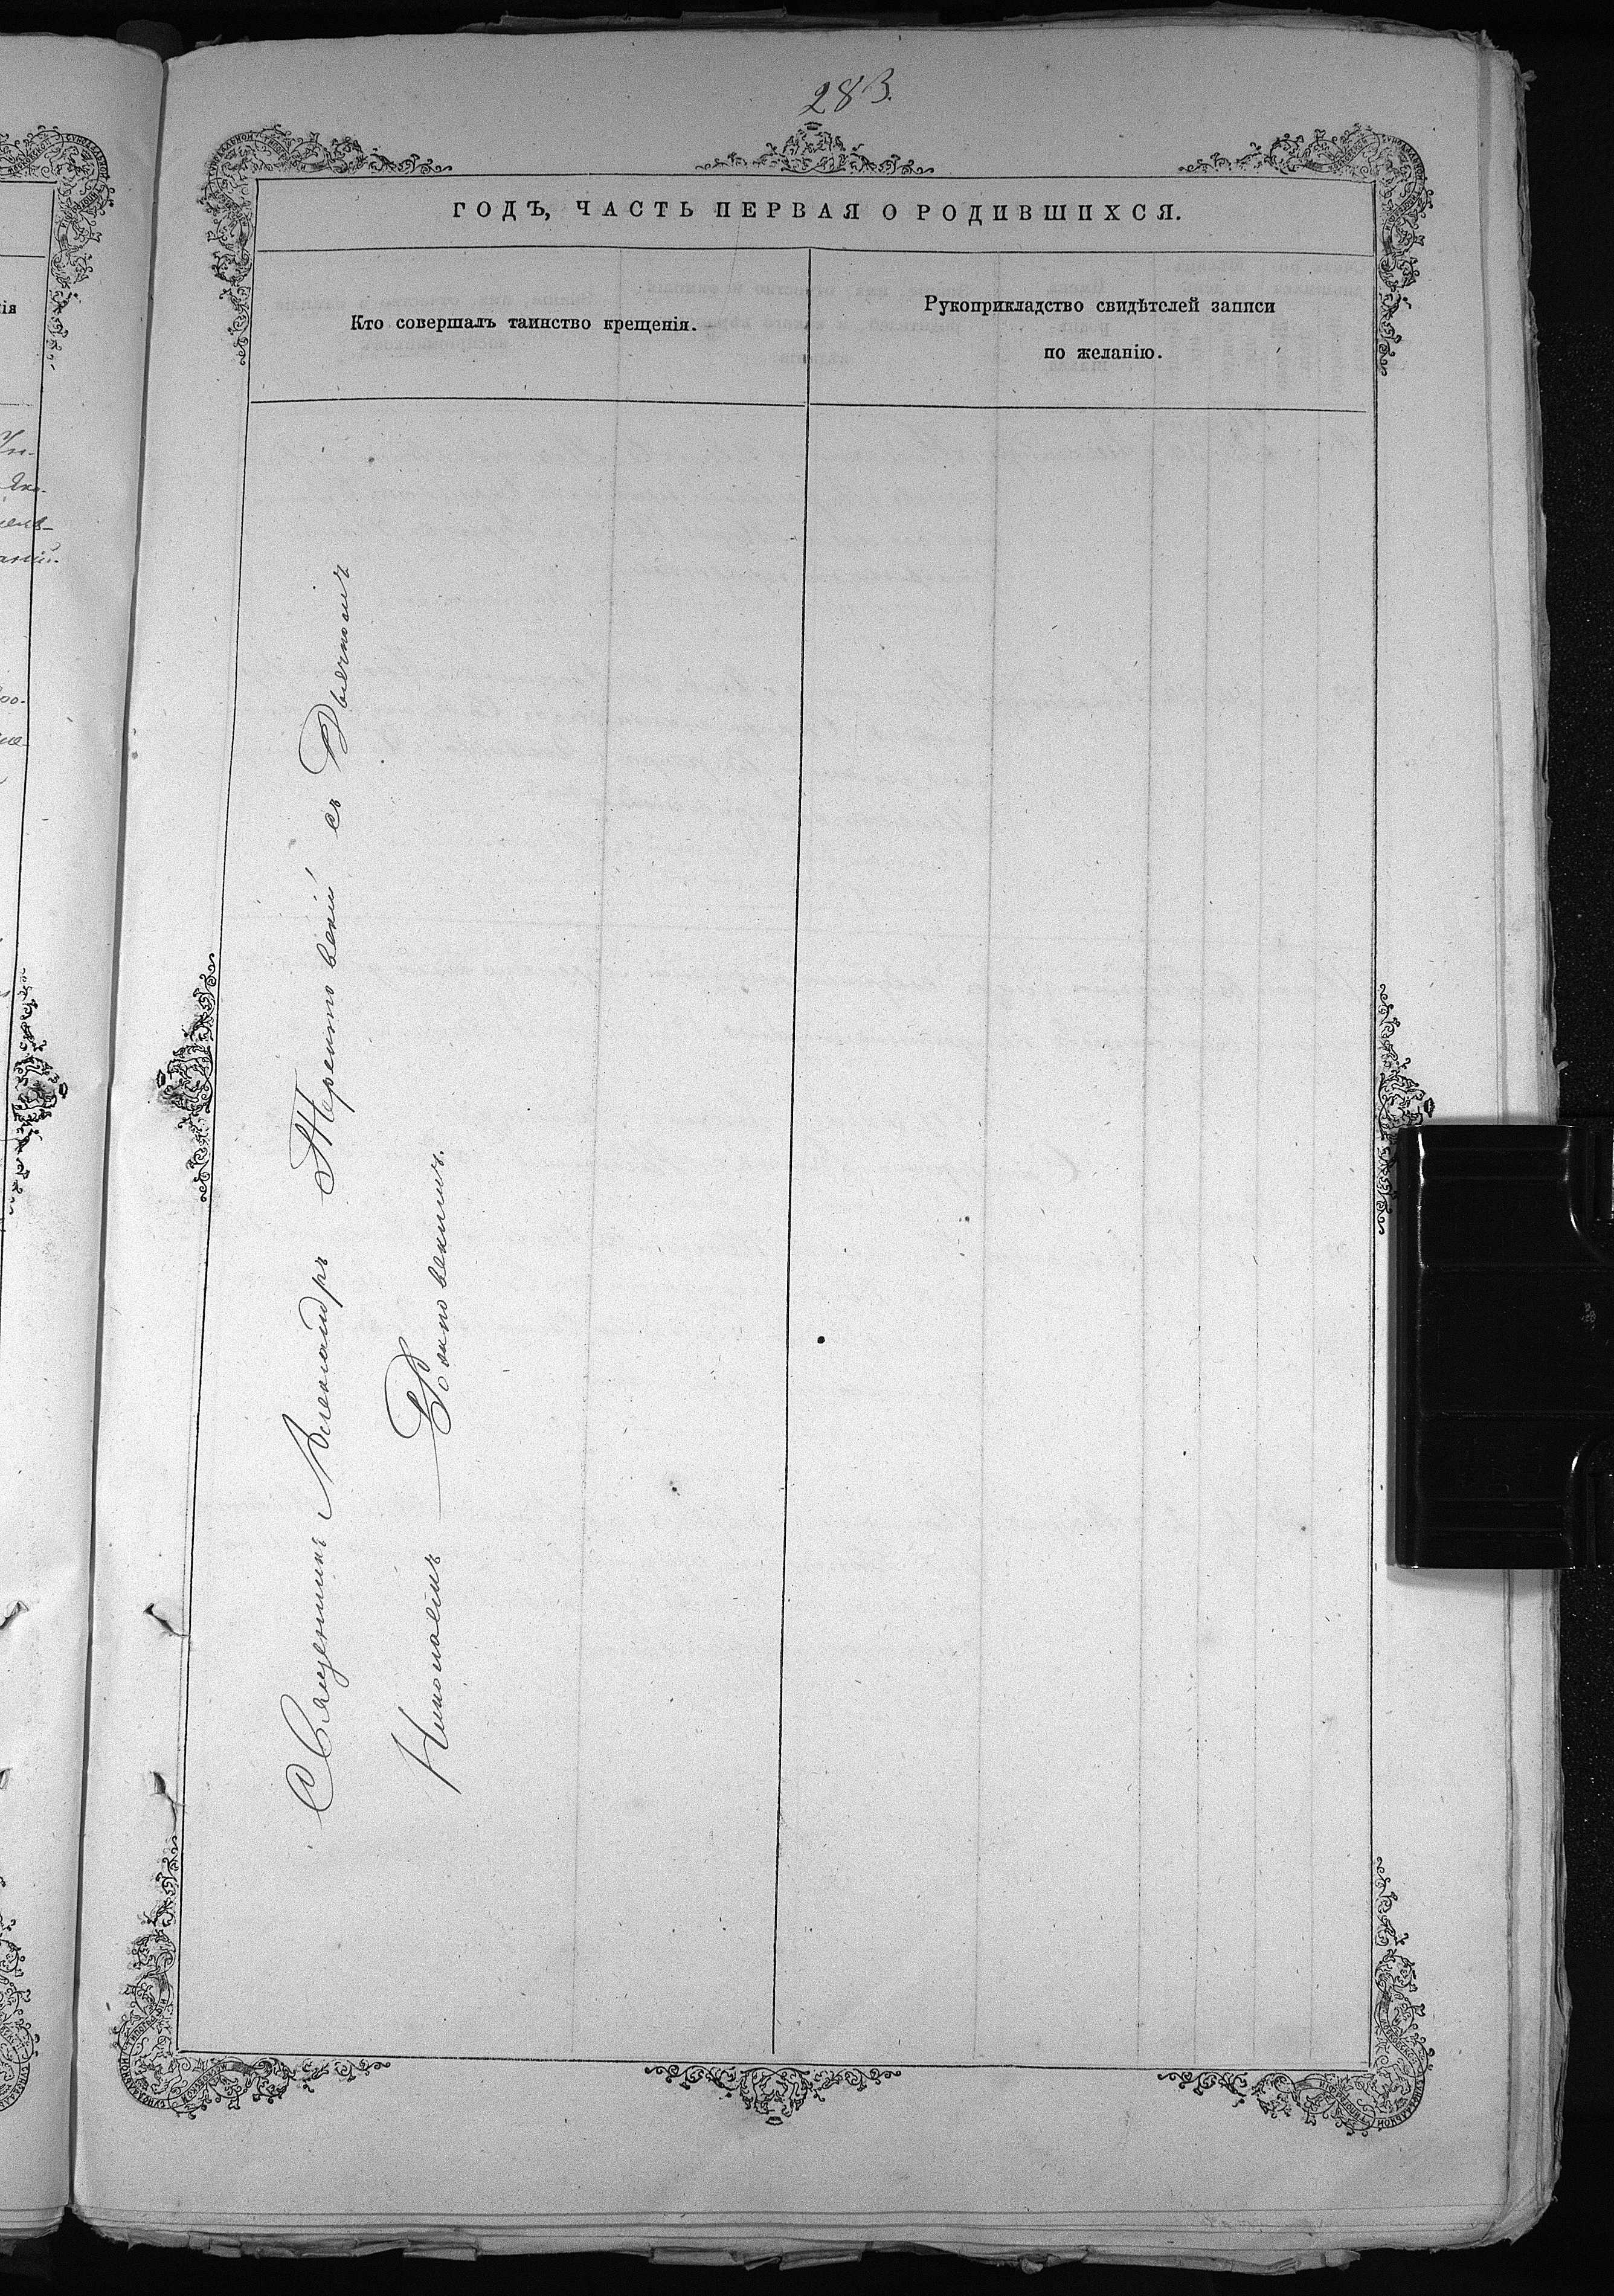 283.
ГОДЪ, ЧАСТЬ ПЕРВАЯ О РОДИВШИХСЯ.
Кто совершалъ таинство крещенія.
Рукоприкладство свидѣтелей записи
по желанію.
Священникъ Александръ съ Дьячкомъ
Николаемъ